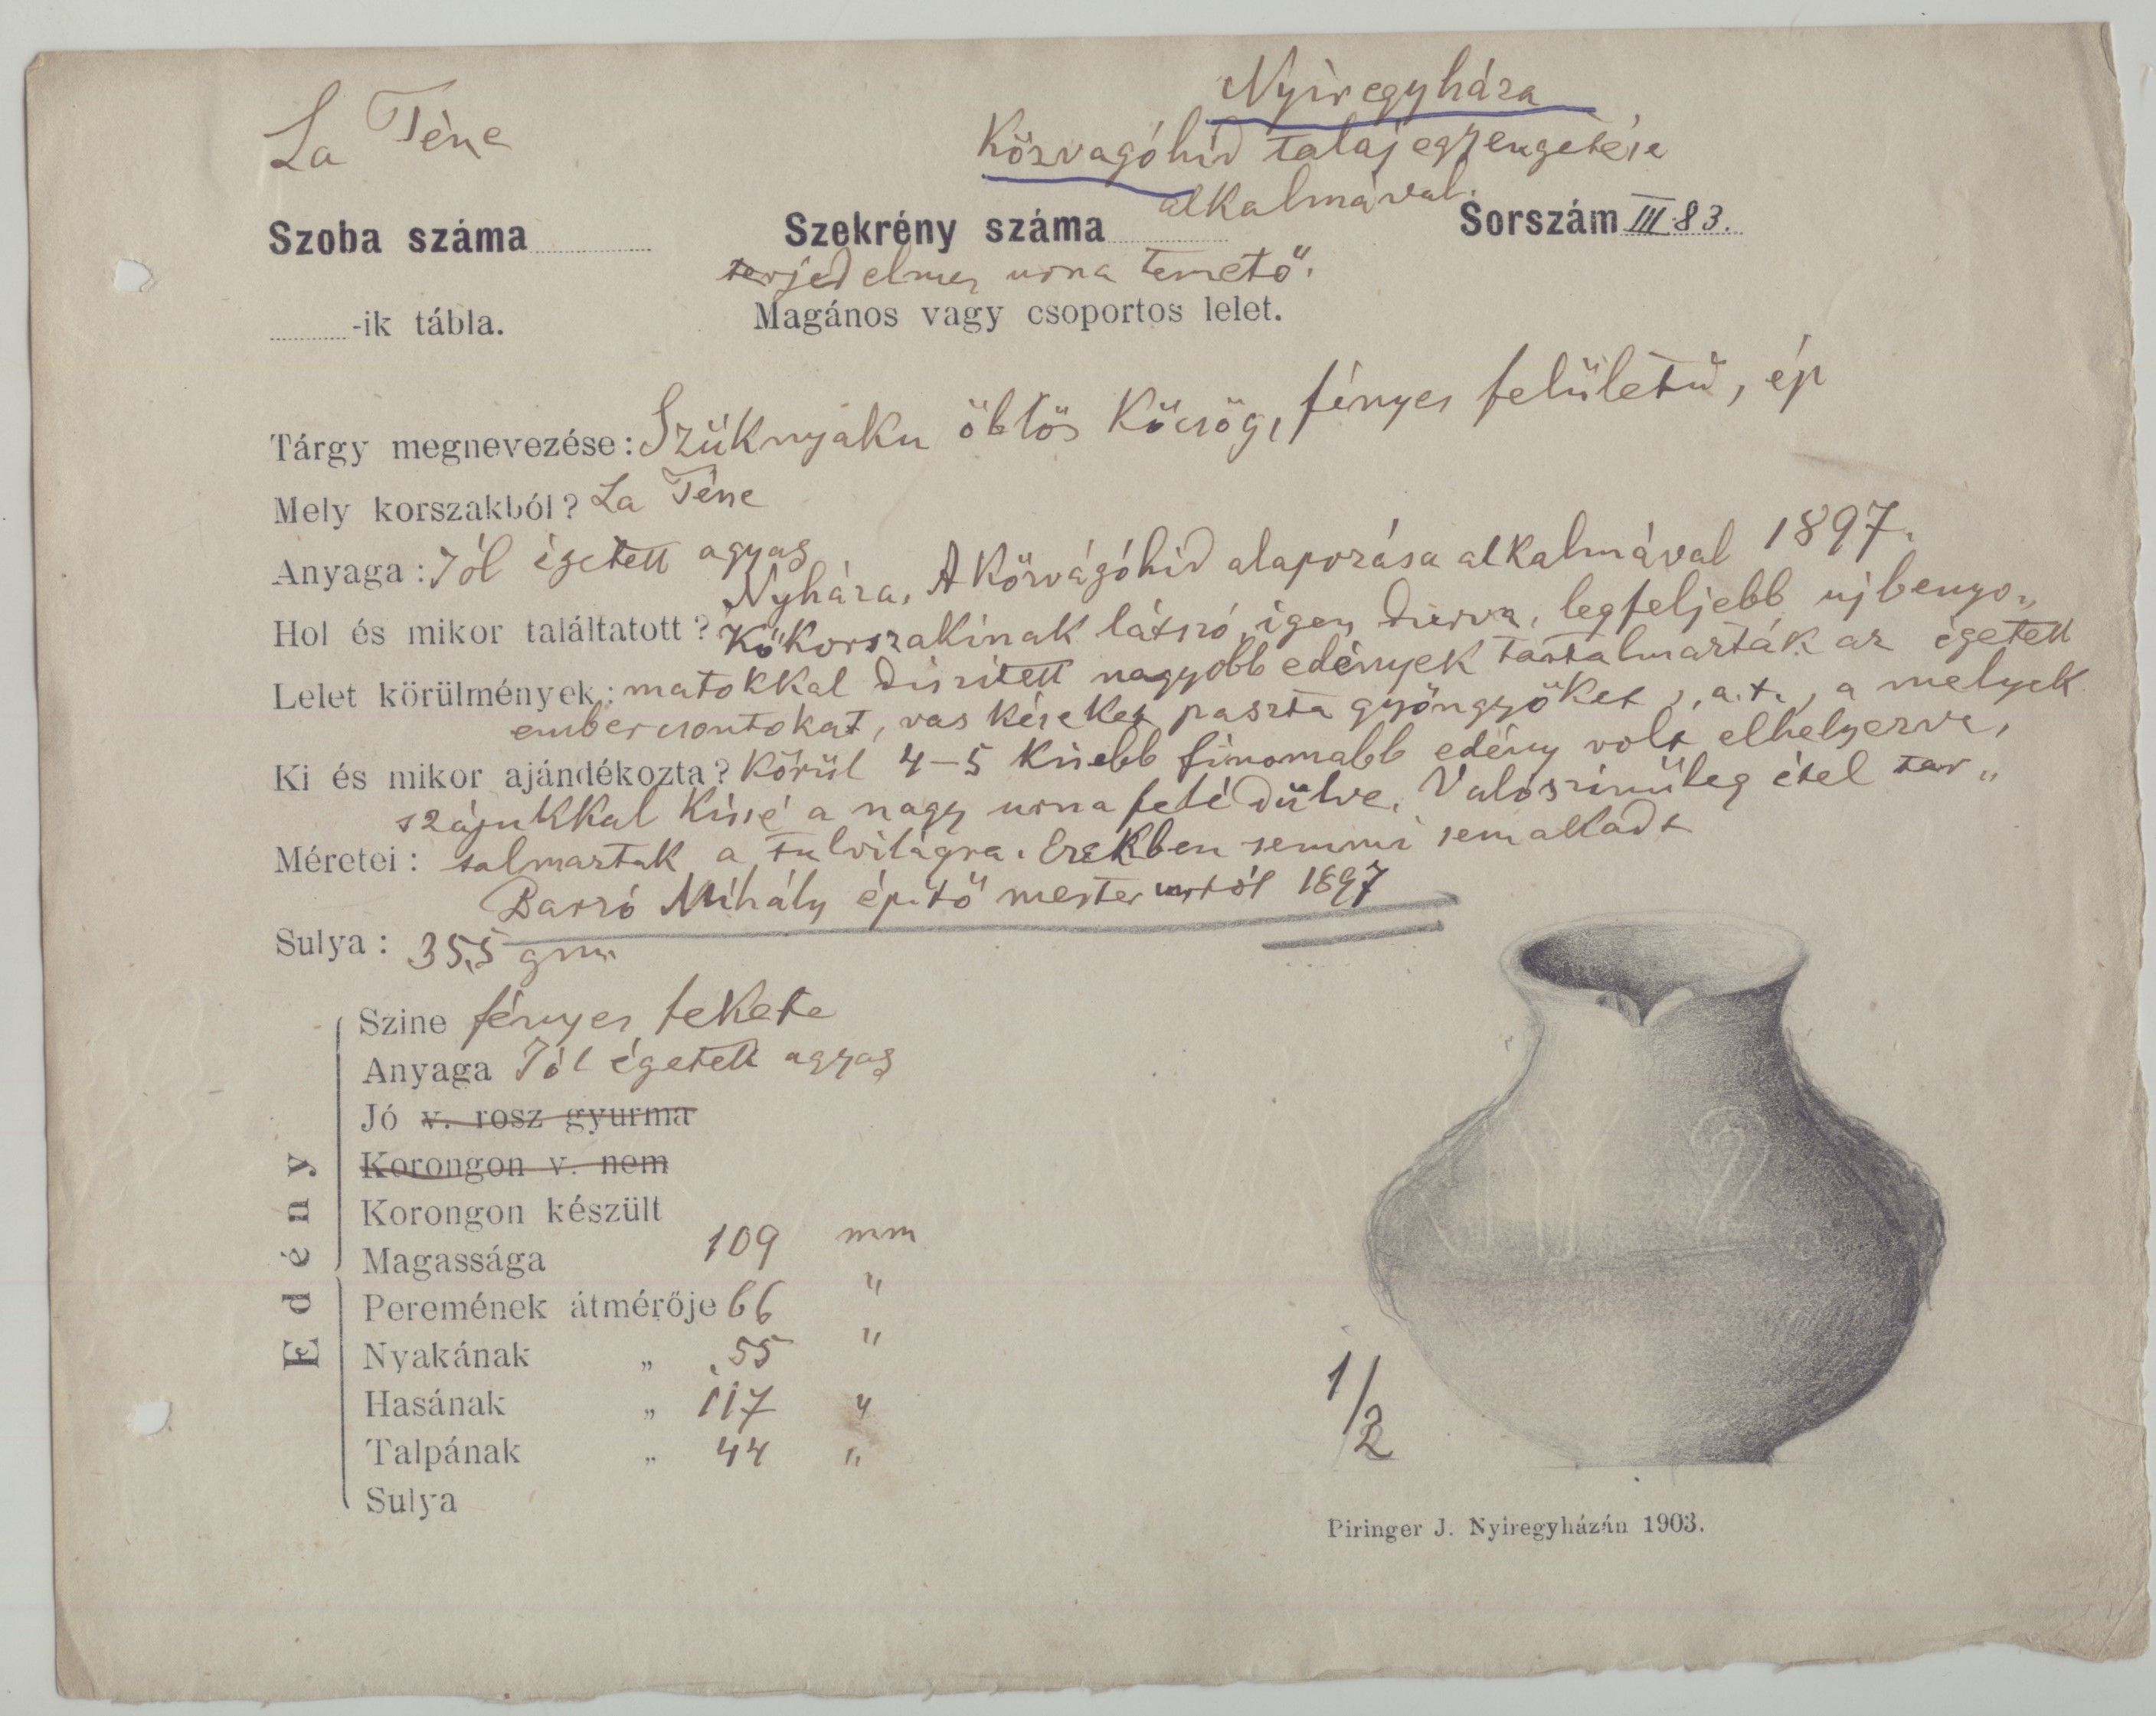 La Téne
Nyiregyháza
Közvagóhíd talaj egyengetése
alkalmával.
Szoba száma
Szekrény száma
Sorszám III.83.
terjedelmes urna temető.
-ik tábla.
Magános vagy csoportos lelet.
Tárgy megnevezése: Szűknyaku öblös köcsög, fényes felületű, ép
Mely korszakból? La Téne
Anyaga: Jól égetett agyag
Nyháza, A közvágóhíd alapozása alkalmával 1897.
Hol és mikor találtatott?
Kőkorszakinak látszó igen durva, legfeljebb ujbenyo„
Lelet körülmények: matokkal diszitett nagyobb edények tartalmazták az égetett
embercsontokat, vas késeket paszta gyöngyöket s, a.t., a melyek
Ki és mikor ajándékozta? körül 4–5 kisebb finomabb edény volt elhelyezve,
szájukkal kissé a nagy urna felé dülve. Valoszinüleg étel tar„
Méretei: talmaztak a tulvilágra. Ezekben semmi sem akadt
Barzó Mihály épitő mester urtól 1897
Sulya: 35,5 grm.
Edény
Szine fényes fekete
Anyaga Jól égetett agyag
Jó v. rosz gyurma
Korongon v. nem
Korongon készült
Magassága 109 mm
Peremének átmérője 66 "
Nyakának „ 55 "
Hasának „ 117 "
Talpának „ 44 "
Sulya
1/2
Piringer J. Nyiregyházán 1903.